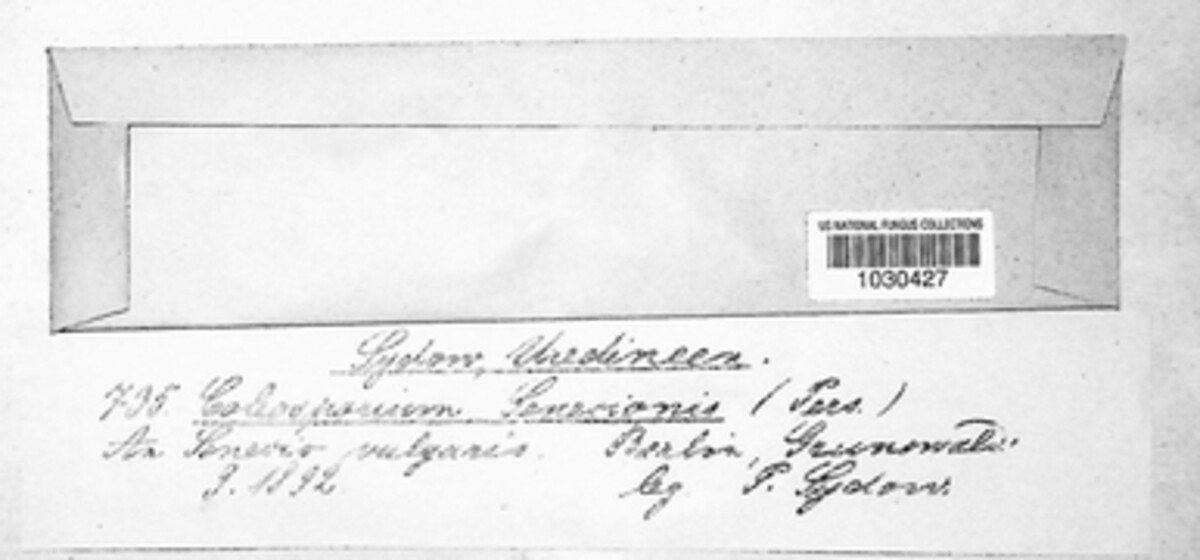 US NATIONAL FUNGUS COLLECTIONS
1030427
Sydow, Uredineen.
735. Coleosporium Senecionis (Pers.)
An Senecio vulgaris. Berlin, Grunewald.
9. 1892. leg. P. Sydow.